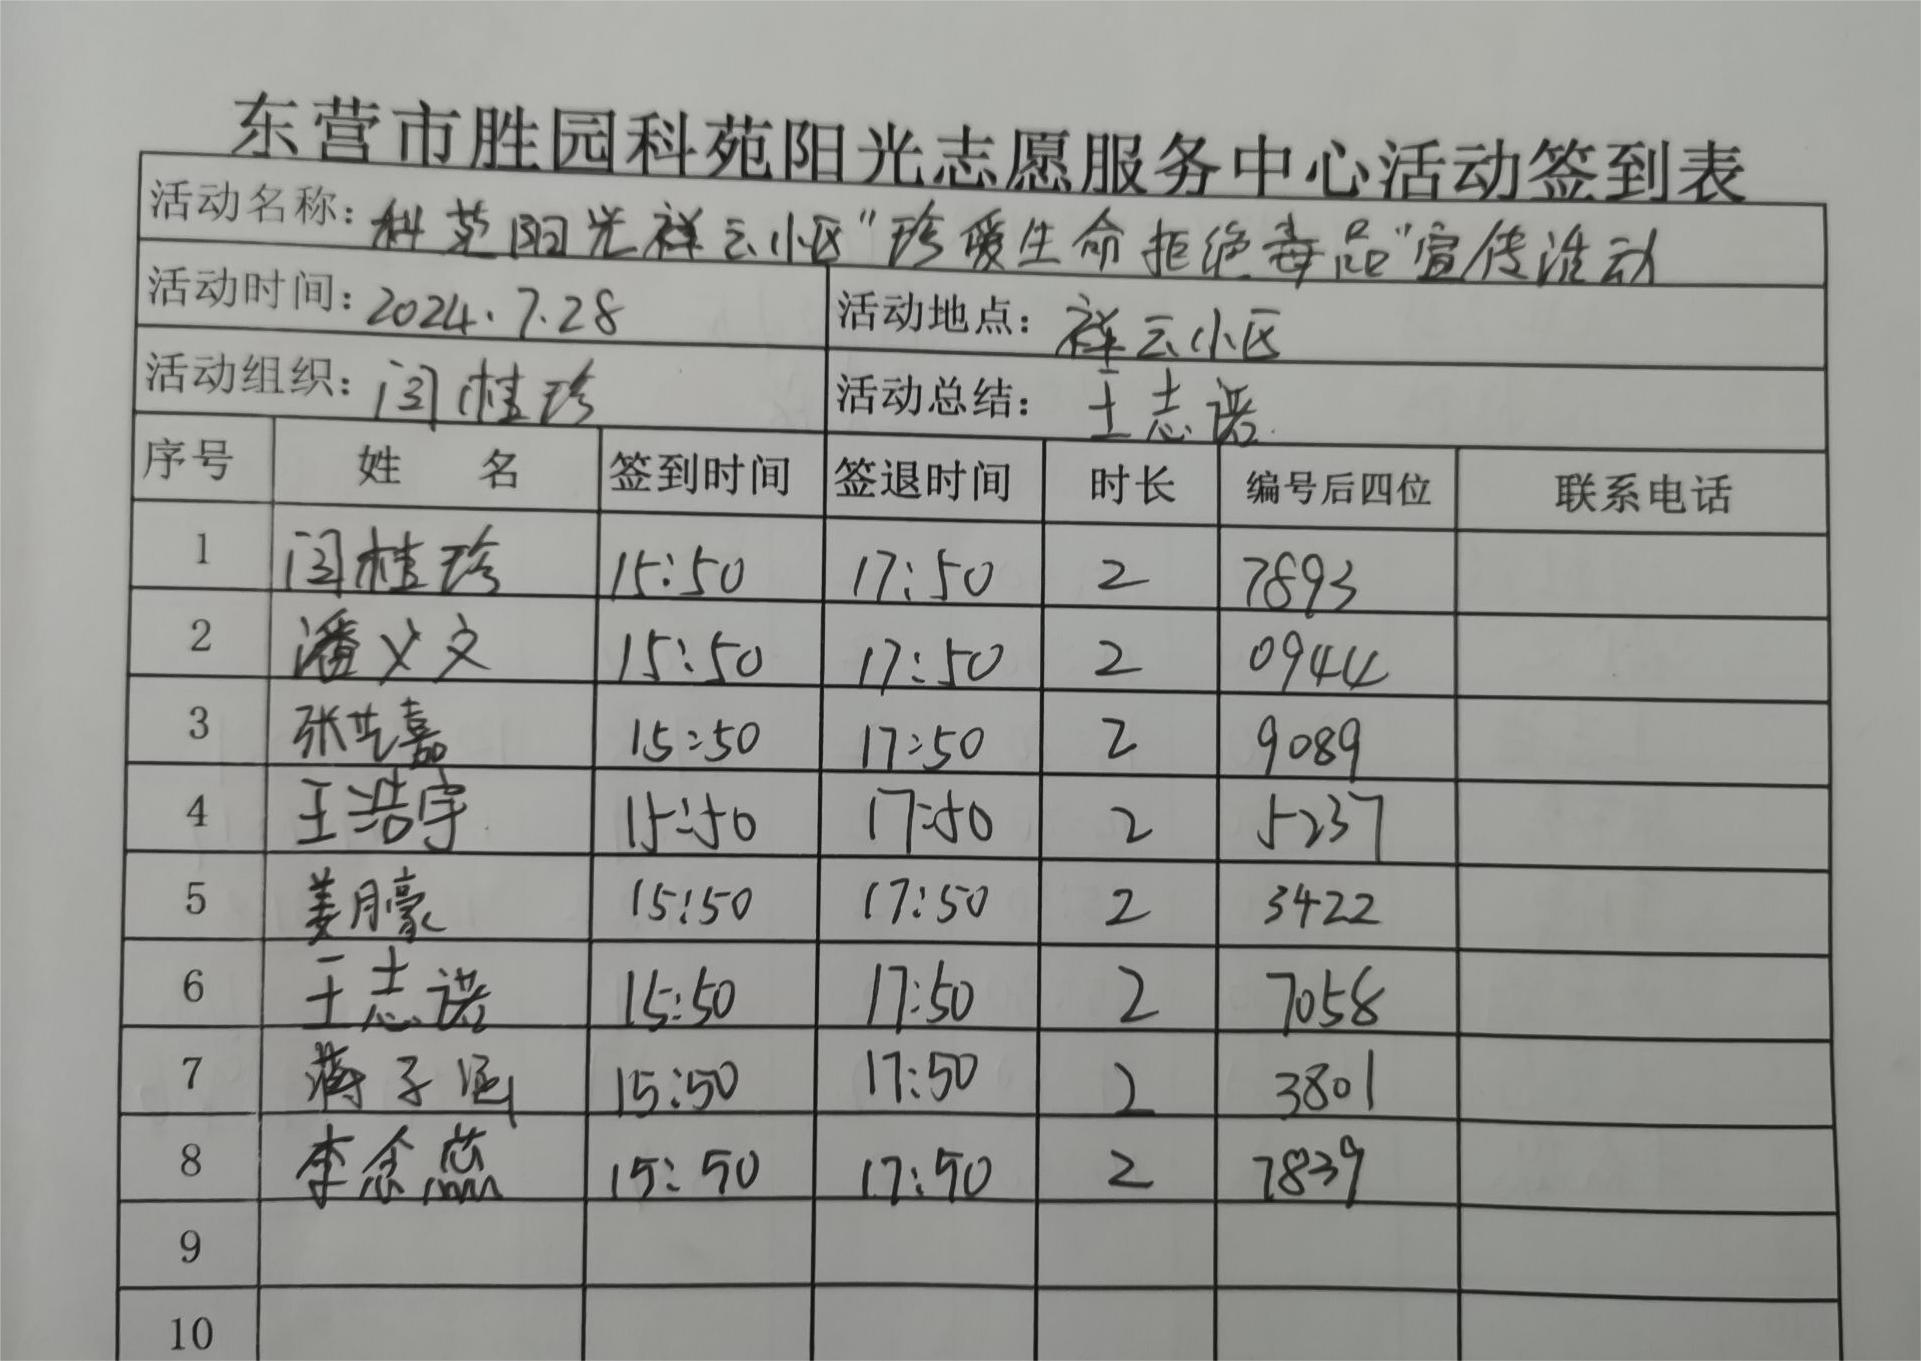 东营市胜园科苑阳光志愿服务中心活动签到表
活动名称：科苑阳光祥云小区"珍爱生命拒绝毒品"宣传活动
活动时间：2024.7.28 活动地点：祥云小区
活动组织：闫桂珍 活动总结：王志诺
序号 姓 名 签到时间 签退时间 时长 编号后四位 联系电话
1 闫桂珍 15:50 17:50 2 7893
2 潘义文 15:50 17:50 2 0944
3 张艺嘉 15:50 17:50 2 9089
4 王浩宇 15:50 17:50 2 5237
5 姜月豪 15:50 17:50 2 3422
6 王志诺 15:50 17:50 2 7058
7 蒋子涵 15:50 17:50 2 3801
8 李念蕊 15:50 17:50 2 7839
9
10